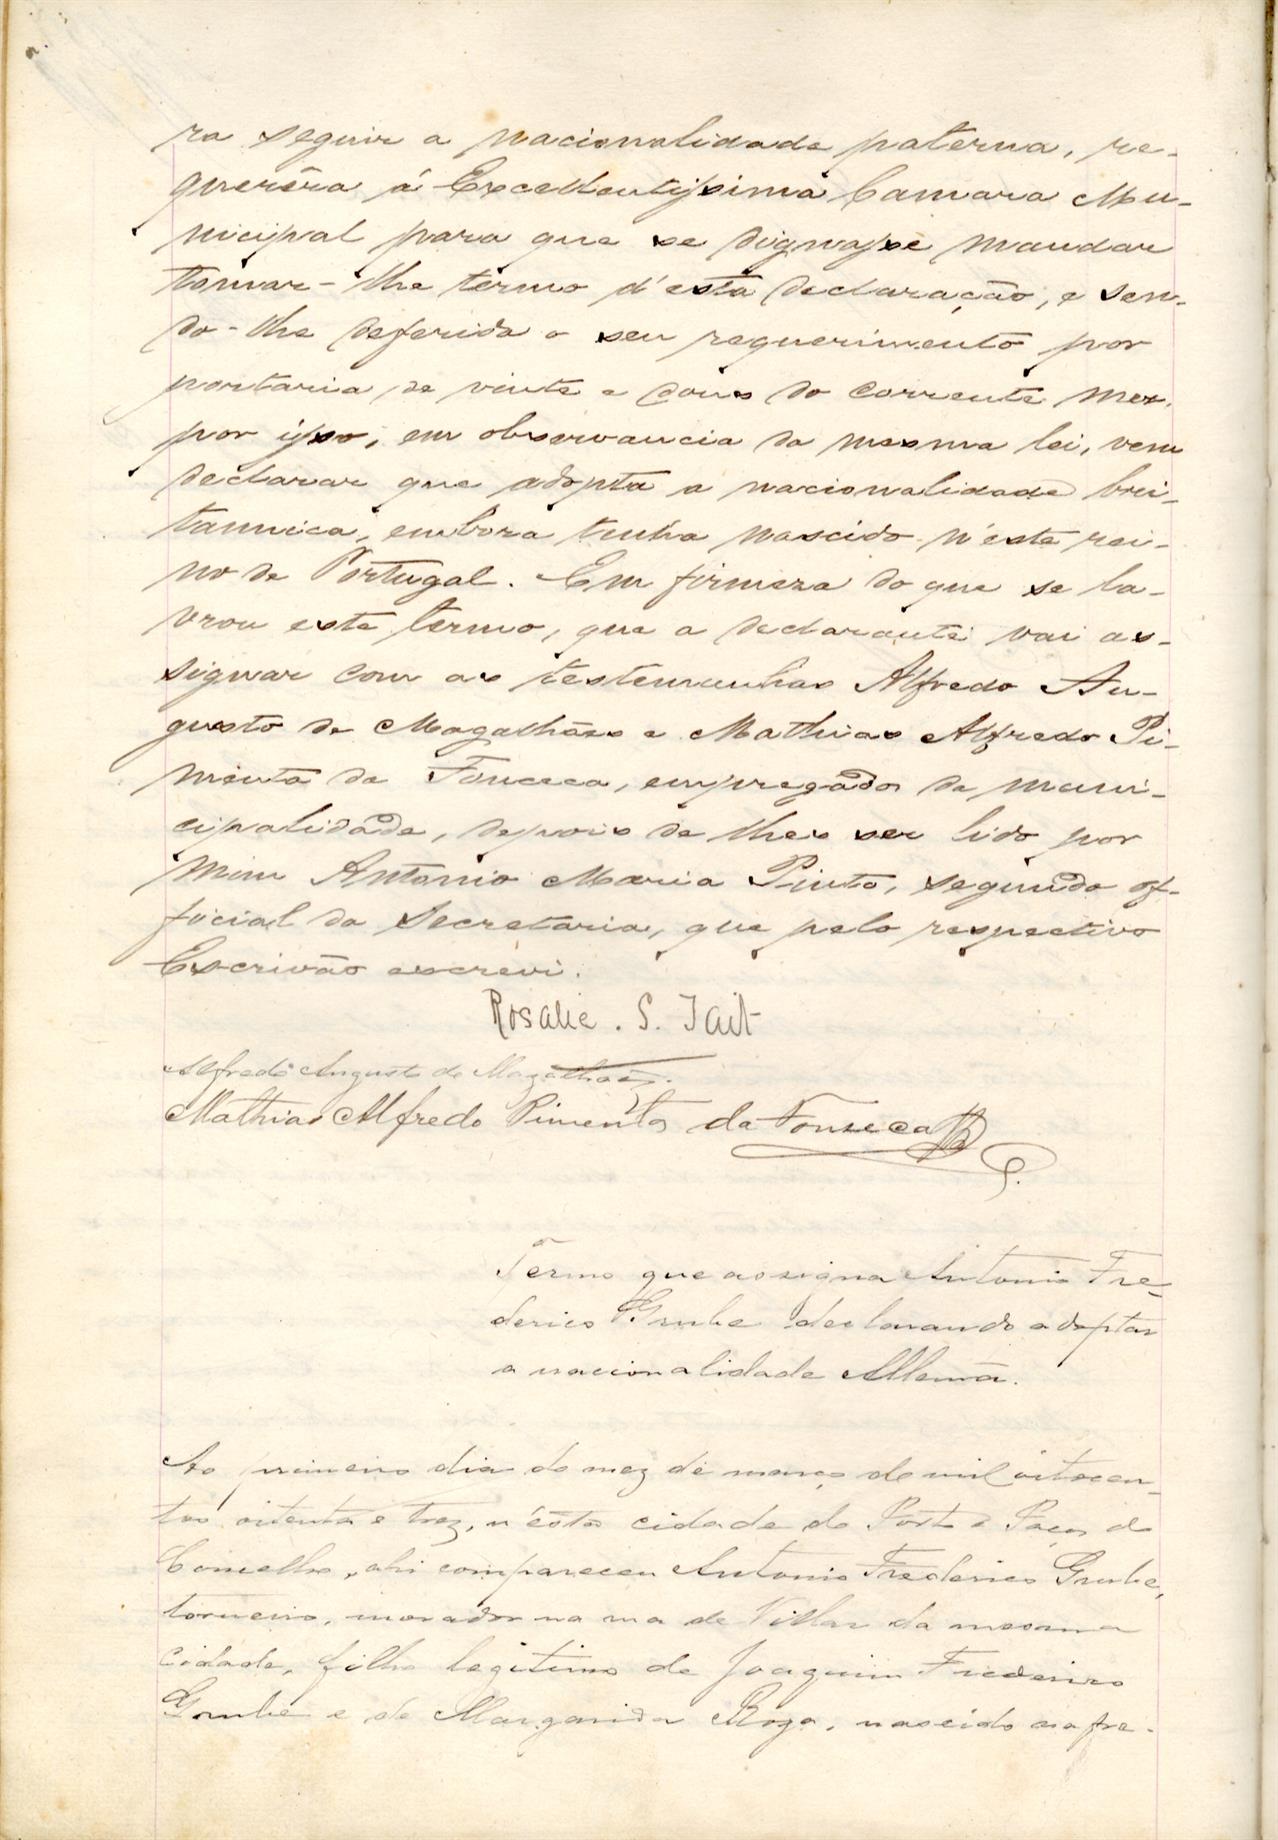 ra seguir a nacionalidade paterna, re-
querêra á Excellentissima Camara Mu-
nicipal para que se dignasse mandar
tomar-lhe termo d'esta declaração, e sen-
do-lhe deferido o seu requerimento por
portaria de vinte e dous do corrente mez,
por isso, em observancia da mesma lei, vem
declarar que adopta a nacionalidade bri-
tannica, embora tenha nascido n'este rei-
no de Portugal. Em firmeza do que se la-
vrou este termo, que a declarante vai as-
signar com as testemunhas Alfredo Au-
gusto de Magalhães e Mathias Alfredo Pi-
menta da Fonceca, empregados da muni-
cipalidade, depois de lhes ser lido por
mim Antonio Maria Pinto, segundo of-
ficial da Secretaria, que pelo respectivo
Escrivão escrevi.
Rosalie. S. Tait
Alfredo Augusto de Magalhães.
Mathias Alfredo Pimenta da Fonseca
Termo que assigna Antonio Fre-
derico Grube declarando adoptar
a nacionalidade Allemã.
Ao primeiro dia do mez de março de mil oitocen-
tos oitenta e trez, n'esta cidade do Porto e Paços do
Concelho, ahi compareceu Antonio Frederico Grube,
torneiro, morador na rua de Villar da mesma
cidade, filho legitimo de Joaquim Frederico
Grube e de Margarida Roza, nascido na fre-